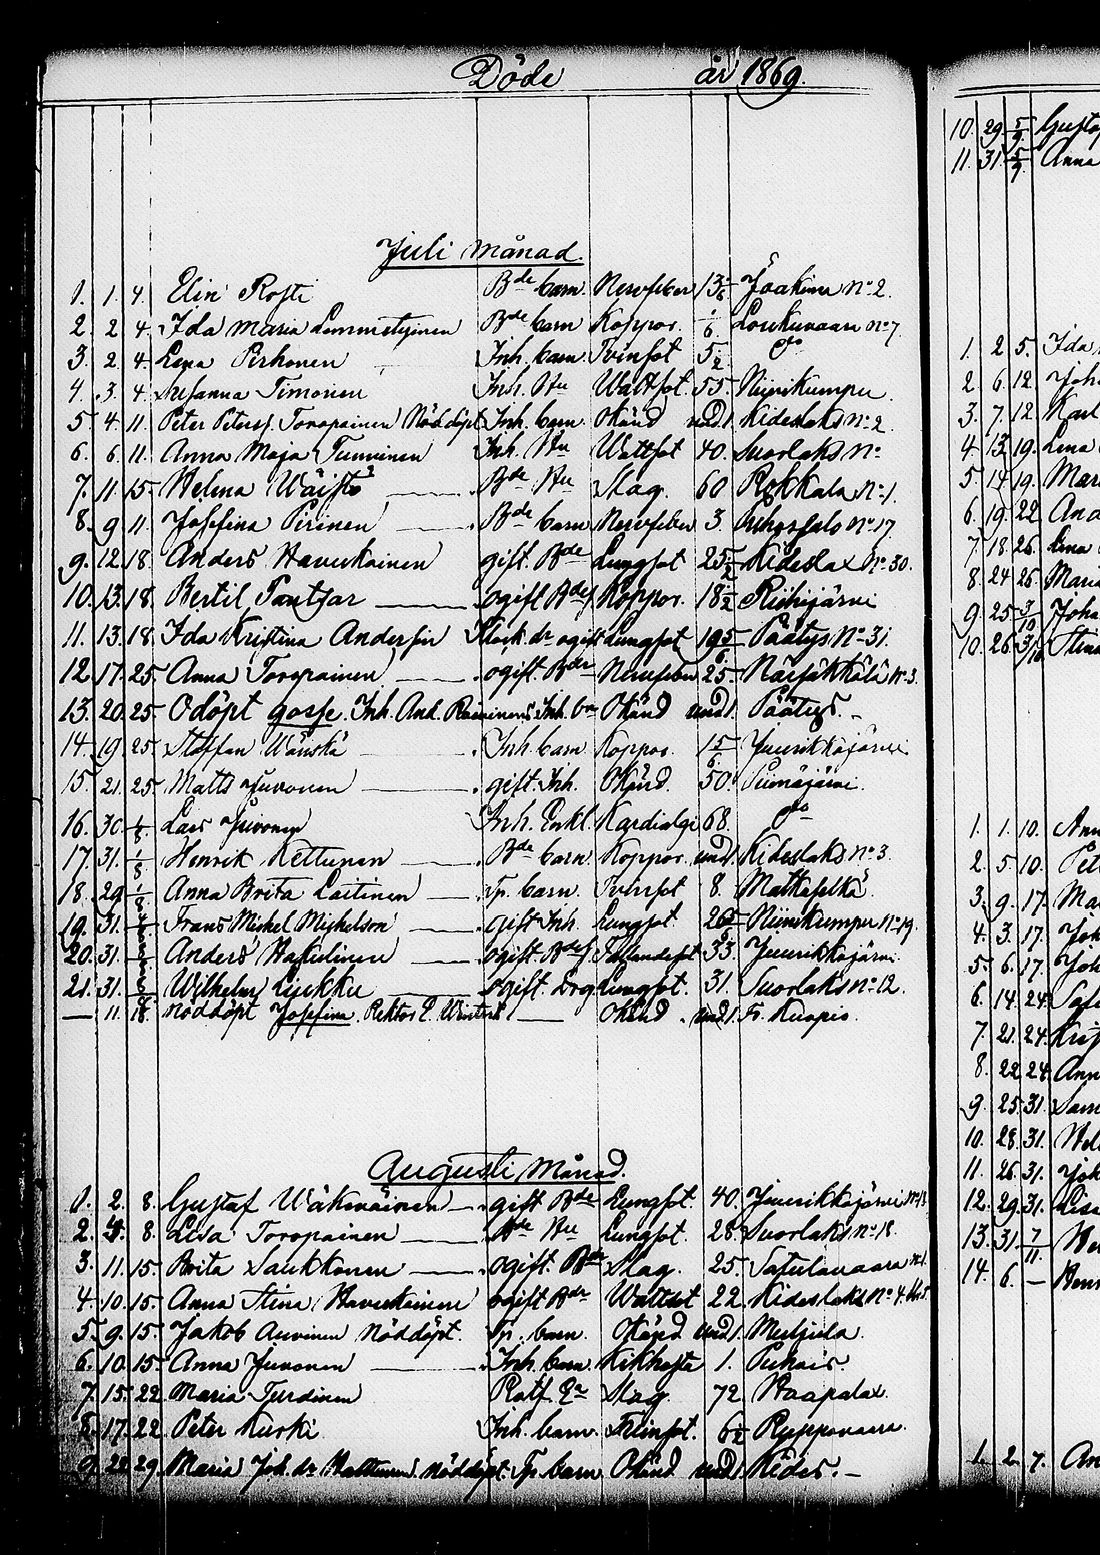 Döde år 1869.
Juli månad.
1. 1. 4. Elin Roste Bde barn. Nervfeber 13 Joakima No 2.
2. 2 4. Ida Maria Bde barn Koppor. 1/6 Loukuvaara No 7
3. 2 4. Lena Pirhonen Inh. barn Tvinsot 5 1/2 do
4. 3. 4 Susanna Timonen Inh. Hu Wattsot 55 Niinikumpu.
5 4. 11. Peter Peters. Toropainen Nöddöpt Inh. barn Okänd und 1. Kideslaks No 2.
6. 6 11. Anna Maja Turunen Inh. Hu Wattsot 40. Suorlaks No
7. 11. 15. Helena Wäistö Bde Hu Slag. 60 Rokkala No 1.
8. 9 11. Josefina Pirinen Bde barn Nervfeber 3. No 17.
9. 12. 18. Anders Haverkainen gift. Bde Lungsot 25 Kideslax No 30.
10. 13. 18. Bertil Pantsar ogift Bdes Koppor. 18 1/2 Riihijärvi
11. 13. 18. Ida Kristina Anderson Klock. dr ogift Lungsot 19 5/6 Päätys No 31.
12. 17. 25. Anna Toropainen ogift. Bdr Nervfeber 25. Närsäkkälä No 3.
13. 20. 25. Odöpt gosse. Inh. And. Raninens Inh. bn Okänd und 1. Päätys.
14. 19. 25 Staffan Wänskä Inh. barn Koppor. 1 5/6 Juurikkajärvi
15. 21. 25 Matts Juvonen gift. Inh. Okänd. 50. Piimäjärvi.
16. 30. 1/8. Lars Juvonen Inh. Enkl. Kardialgi 68. do
17. 31. 1/8 Henrik Kettunen Bde barn Koppor und 1. Kideslaks No 3.
18. 29. 1/8 Anna Brita Laitinen Tp. barn. Tvinsot 8. Matkaselkä.
19. 31. Frans Mickel Mickelson gift Inh. Lungsot. 26 Niinikumpu No 19.
20. 31. Anders Hakulinen ogift Bdes Fallandesot 33. Juurikkajärvi
21. 31. Wilhelm Liukku ogift. Drg Lungsot. 31. Suorlaks No 12.
— 11. 18. Nöddöpt Josefina. Rektor E. — Okänd und 1. Fr. Kuopio.
Augusti månad.
1. 2. 8. Gustaf Wäkeväinen gift Bde Lungsot. 40. Juurikkajärvi
2. 4. 8. Lisa Toropainen Bde Hu Lungsot. 28. Suorlaks No 18.
3. 11. 15. Brita Saukkonen ogift. Bdr Slag. 25. Satulavaara
4. 10. 15. Anna Stina Haverkainen ogift Bdr Wattsot 22. Kideslaks No 4.
5. 9. 15. Jakob Auvinen nöddöpt. Tp. barn. Okänd und 1. Muljula.
6. 10. 15. Anna Juvonen Inh. barn. Kikhosta 1. Puhois.
7. 15. 22. Maria Turdinen Rotf. Ea Slag. 72. Haapalax
8. 17. 22. Peter Kurki Inh. barn. 6 1/2
9. 28. 29. Maria Joh. dr nöddöpt. Tp barn Okänd und 1. Kides.
10. 29. 5/9.
11. 31. 5/9. Anna
1. 2 5. Ida
2. 6. 12. Joh
3. 7. 12 Karl
4. 13. 19. Lena
5. 14. 19. Mari
6. 19. 22 And
7. 18. 26. Lena
8. 24 26. Maria
9. 25 3/10 Joha
10. 26 3/10 Stina
1. 1. 10.
2. 5 10.
3. 9. 17.
4. 3. 17. Joh
5. 6. 17. Joh
6. 14. 24.
7. 21. 24.
8. 22 24. Ann
9. 25. 31.
10. 28. 31.
11. 26. 31. Joh
12. 29. 31. Lisa
13. 31. 7/11
14. 6. —
1. 2. 7. An